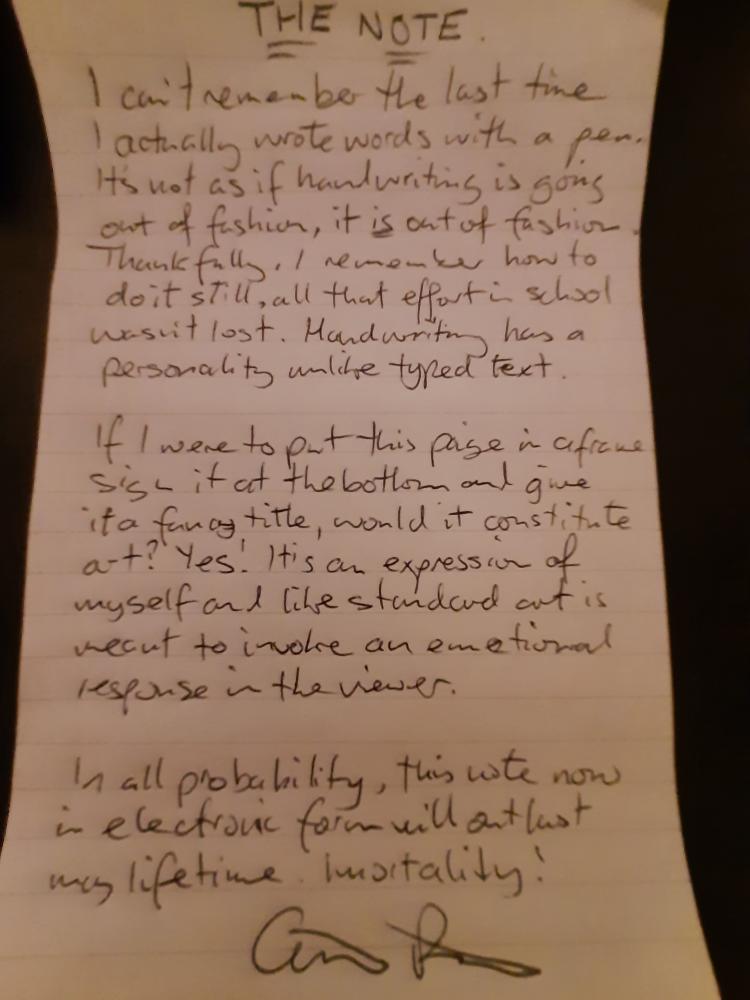 THE NOTE.
I can't remember the last time
I actually wrote words with a pen.
It's not as if handwriting is going
out of fashion, it is out of fashion.
Thankfully, I remember how to
do it still, all that effort in school
wasn't lost. Handwriting has a
personality unlike typed text.
If I were to put this page in a frame
sign it at the bottom and give
it a fancy title, would it constitute
art? Yes! It's an expression of
myself and like standard art is
meant to invoke an emotional
response in the viewer.
In all probability, this note now
in electronic form will outlast
my lifetime. Imortality!